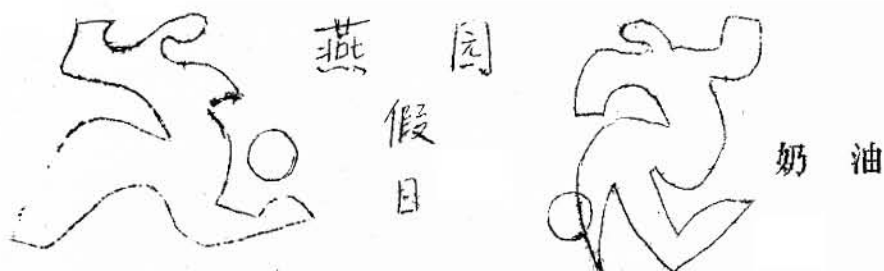 燕园
假
日
奶油